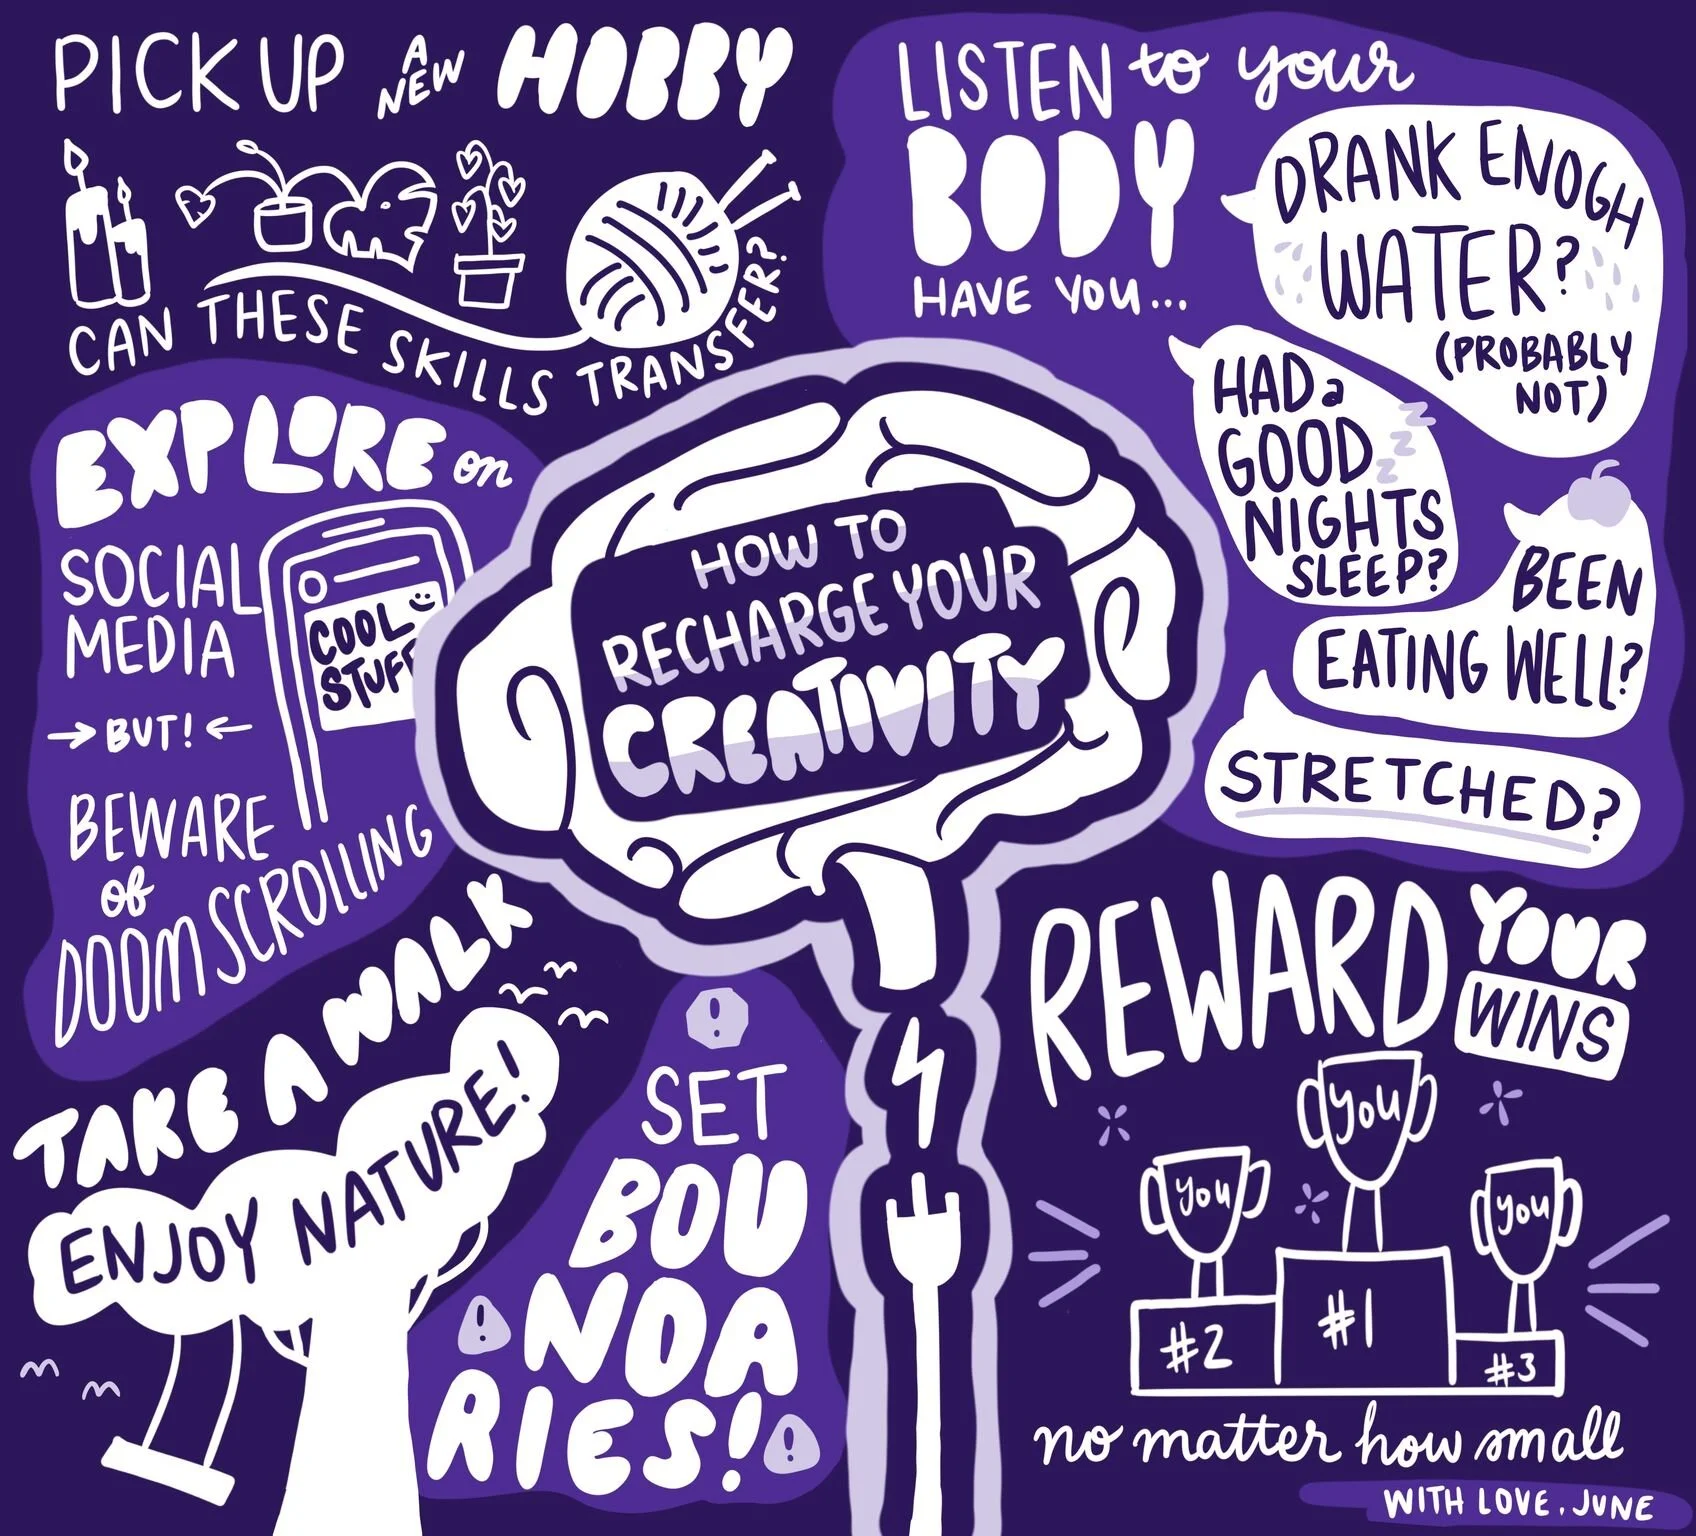 PICK UP A NEW HOBBY
CAN THESE SKILLS TRANSFER?
LISTEN to your
BODY
HAVE YOU...
DRANK ENOGH
WATER?
(PROBABLY
NOT)
HAD a
GOOD
NIGHTS
SLEEP?
zzz
BEEN
EATING WELL?
STRETCHED?
EXPLORE on
SOCIAL
MEDIA
→ BUT! ←
BEWARE
of
DOOMSCROLLING
COOL
STUFF
HOW TO
RECHARGE YOUR
CREATIVITY
TAKE A WALK
ENJOY NATURE!
!
SET
BOU
NDA
RIES!
!
!
REWARD YOUR
WINS
you
you
you
#2
#1
#3
no matter how small
WITH LOVE, JUNE